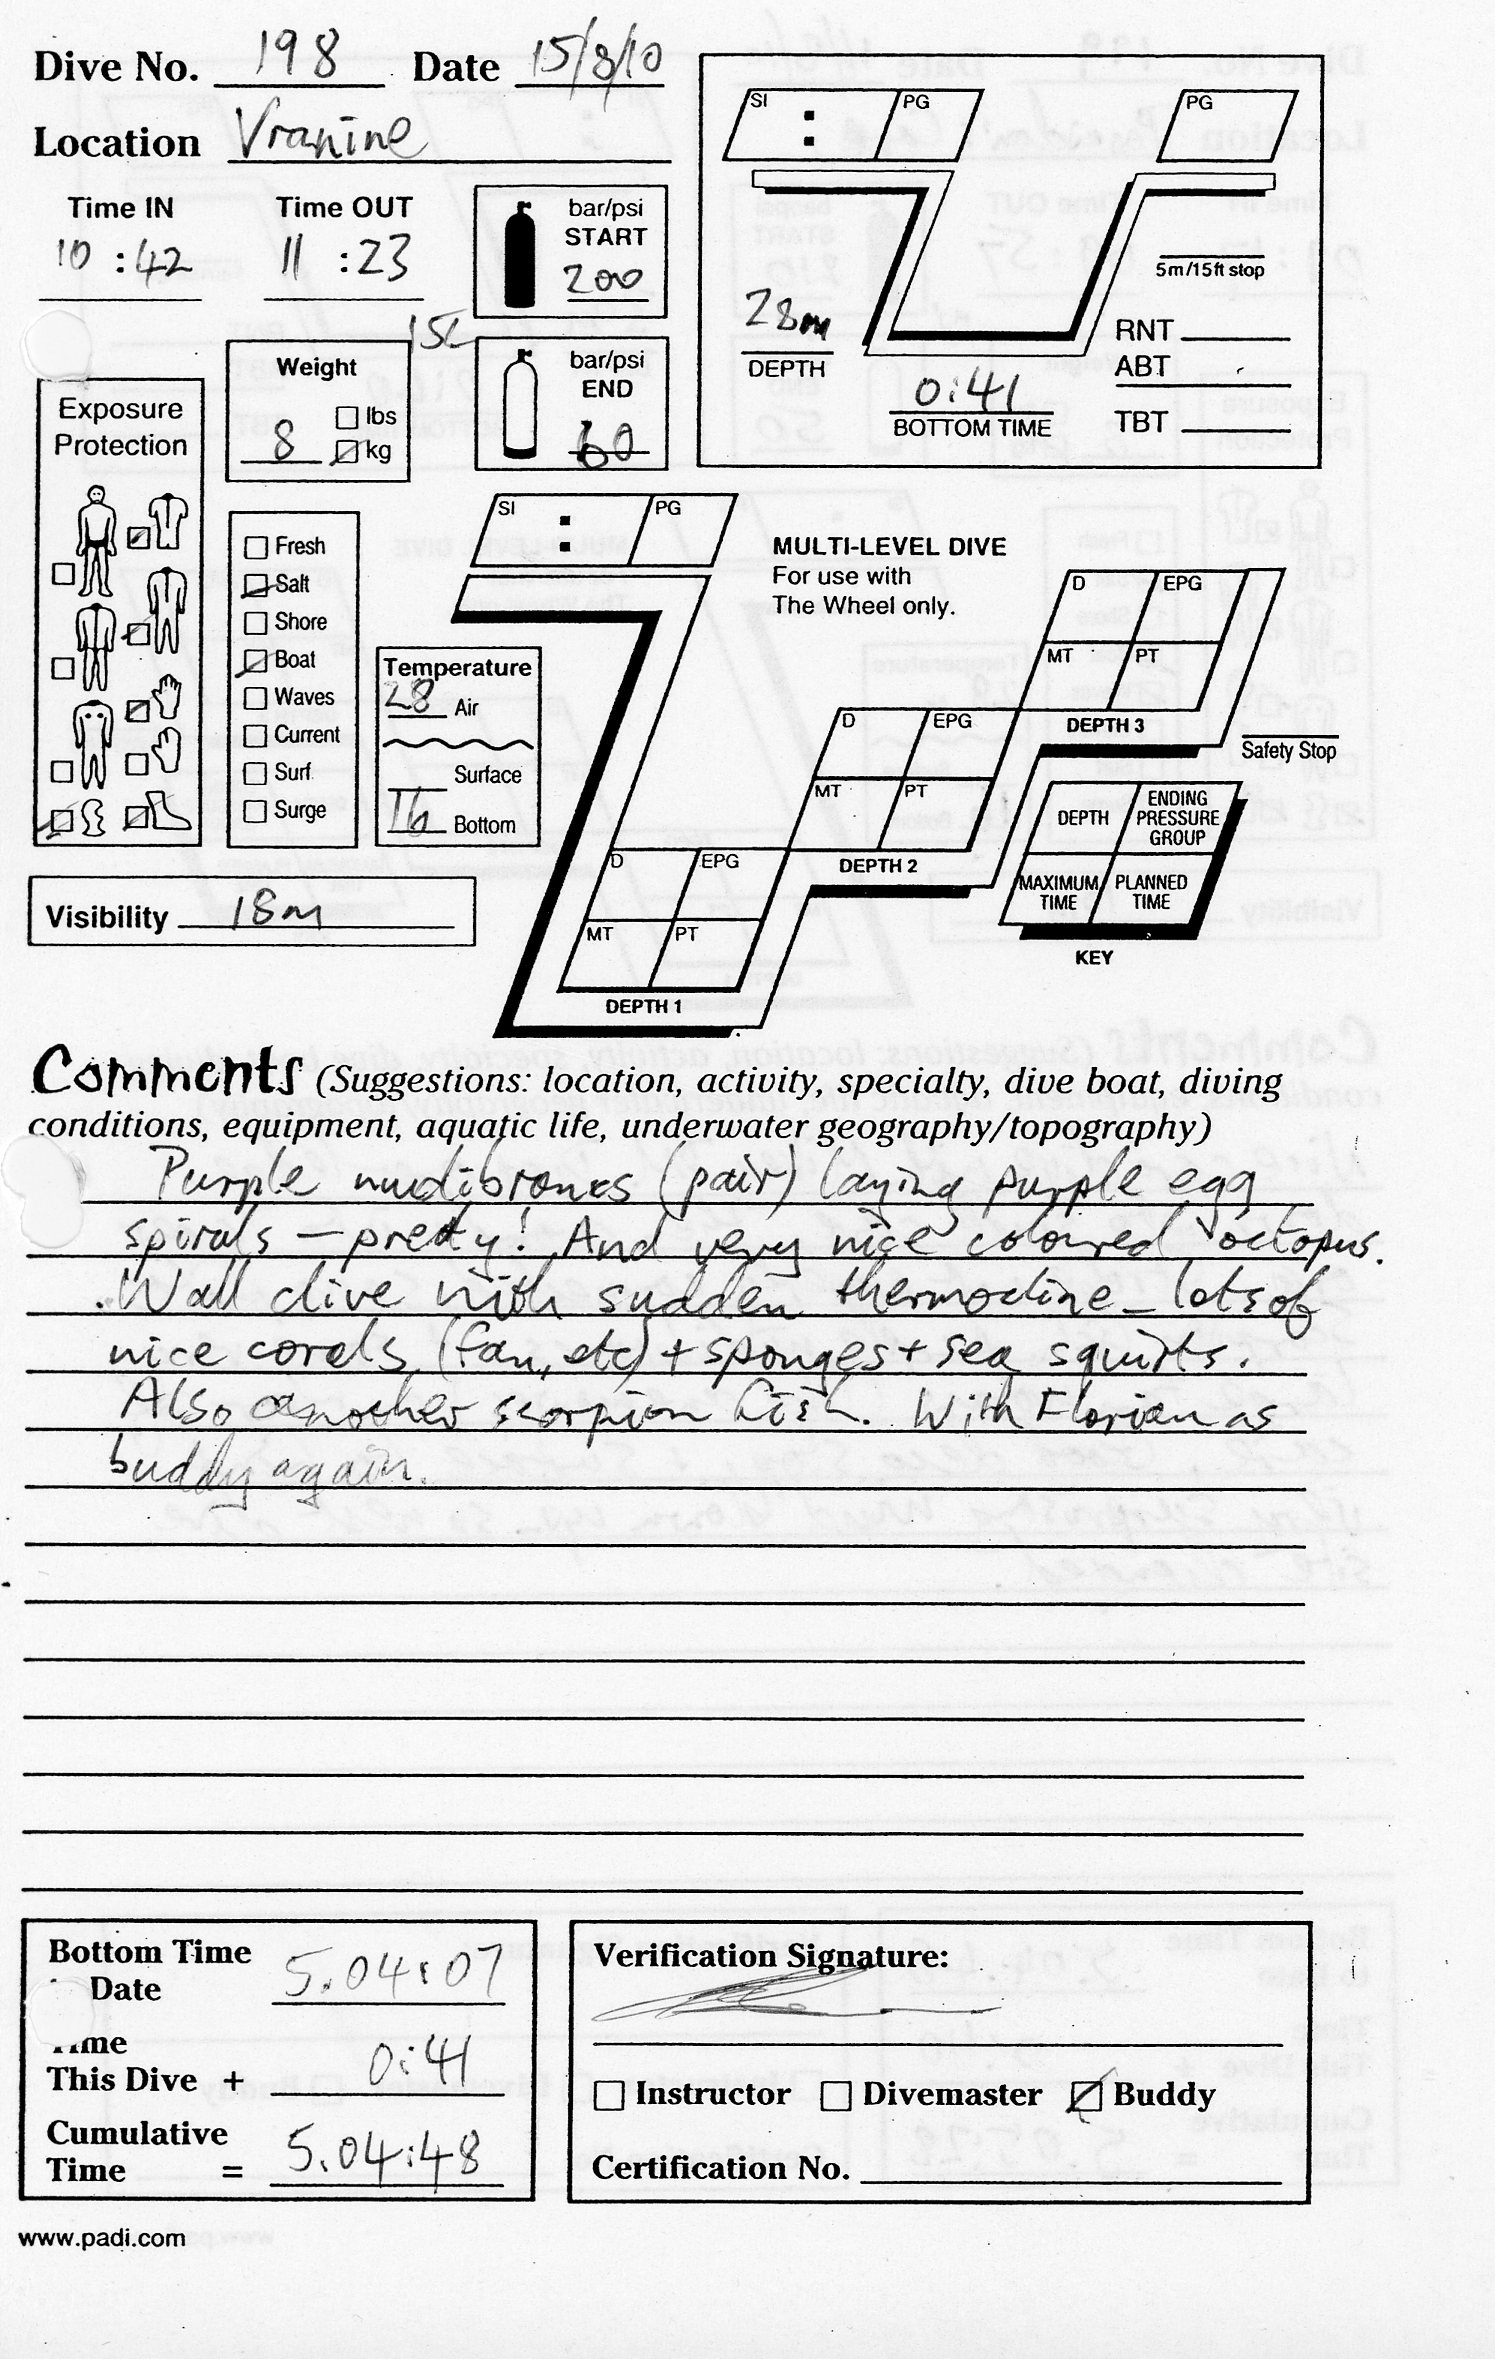 Dive No. 198 Date 15/8/10
Location Vranine
Time IN Time OUT
10 : 42 11 : 23
bar/psi
START
200
15L
bar/psi
END
60
Weight
8
lbs
kg
Exposure
Protection
Fresh
Salt
Shore
Boat
Waves
Current
Surf
Surge
Temperature
28 Air
Surface
16 Bottom
Visibility 18m
SI : PG
PG
28m
DEPTH
0:41
BOTTOM TIME
5m/15ft stop
RNT
ABT
TBT
SI : PG
MULTI-LEVEL DIVE
For use with
The Wheel only.
D EPG
MT PT
DEPTH 3
Safety Stop
D EPG
MT PT
DEPTH 2
D EPG
MT PT
DEPTH 1
DEPTH
ENDING
PRESSURE
GROUP
MAXIMUM
TIME
PLANNED
TIME
KEY
Comments (Suggestions: location, activity, specialty, dive boat, diving
conditions, equipment, aquatic life, underwater geography/topography)
Purple (pair) laying purple egg
spirals – pretty! And very nice coloured octopus.
Wall dive with sudden thermocline – lots of
nice corals (fan, etc) + sponges + sea squirts.
Also another scorpion fish. With Florian as
buddy again.
Bottom Time
Date 5.04:07
This Dive + 0:41
Cumulative
Time = 5.04:48
Verification Signature:
Instructor Divemaster Buddy
Certification No.
www.padi.com